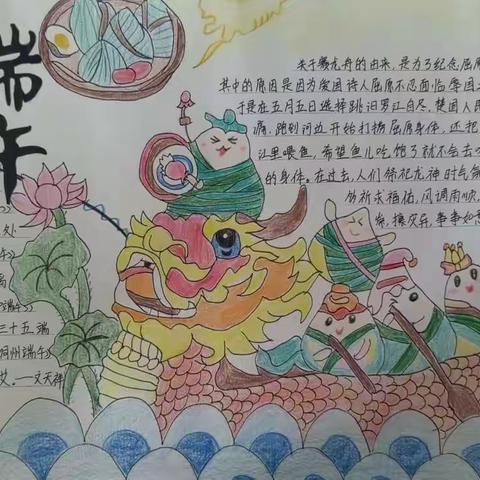 端
午
关于赛龙舟的由来,是为了纪念屈原
其中的原因是因为爱国诗人屈原不忍面临
于是在五月五日选择跳汨罗江自尽,楚国人民
痛,跑到河边开始打捞屈原身体,还把
江里喂鱼,希望鱼儿吃饱了就不会去
的身体。在过去,人们祭祀龙神时气氛
的祈求福佑,风调雨顺,
祟,攘灾异,事事如意
处
三十五 端
端午》
艾。——文天祥